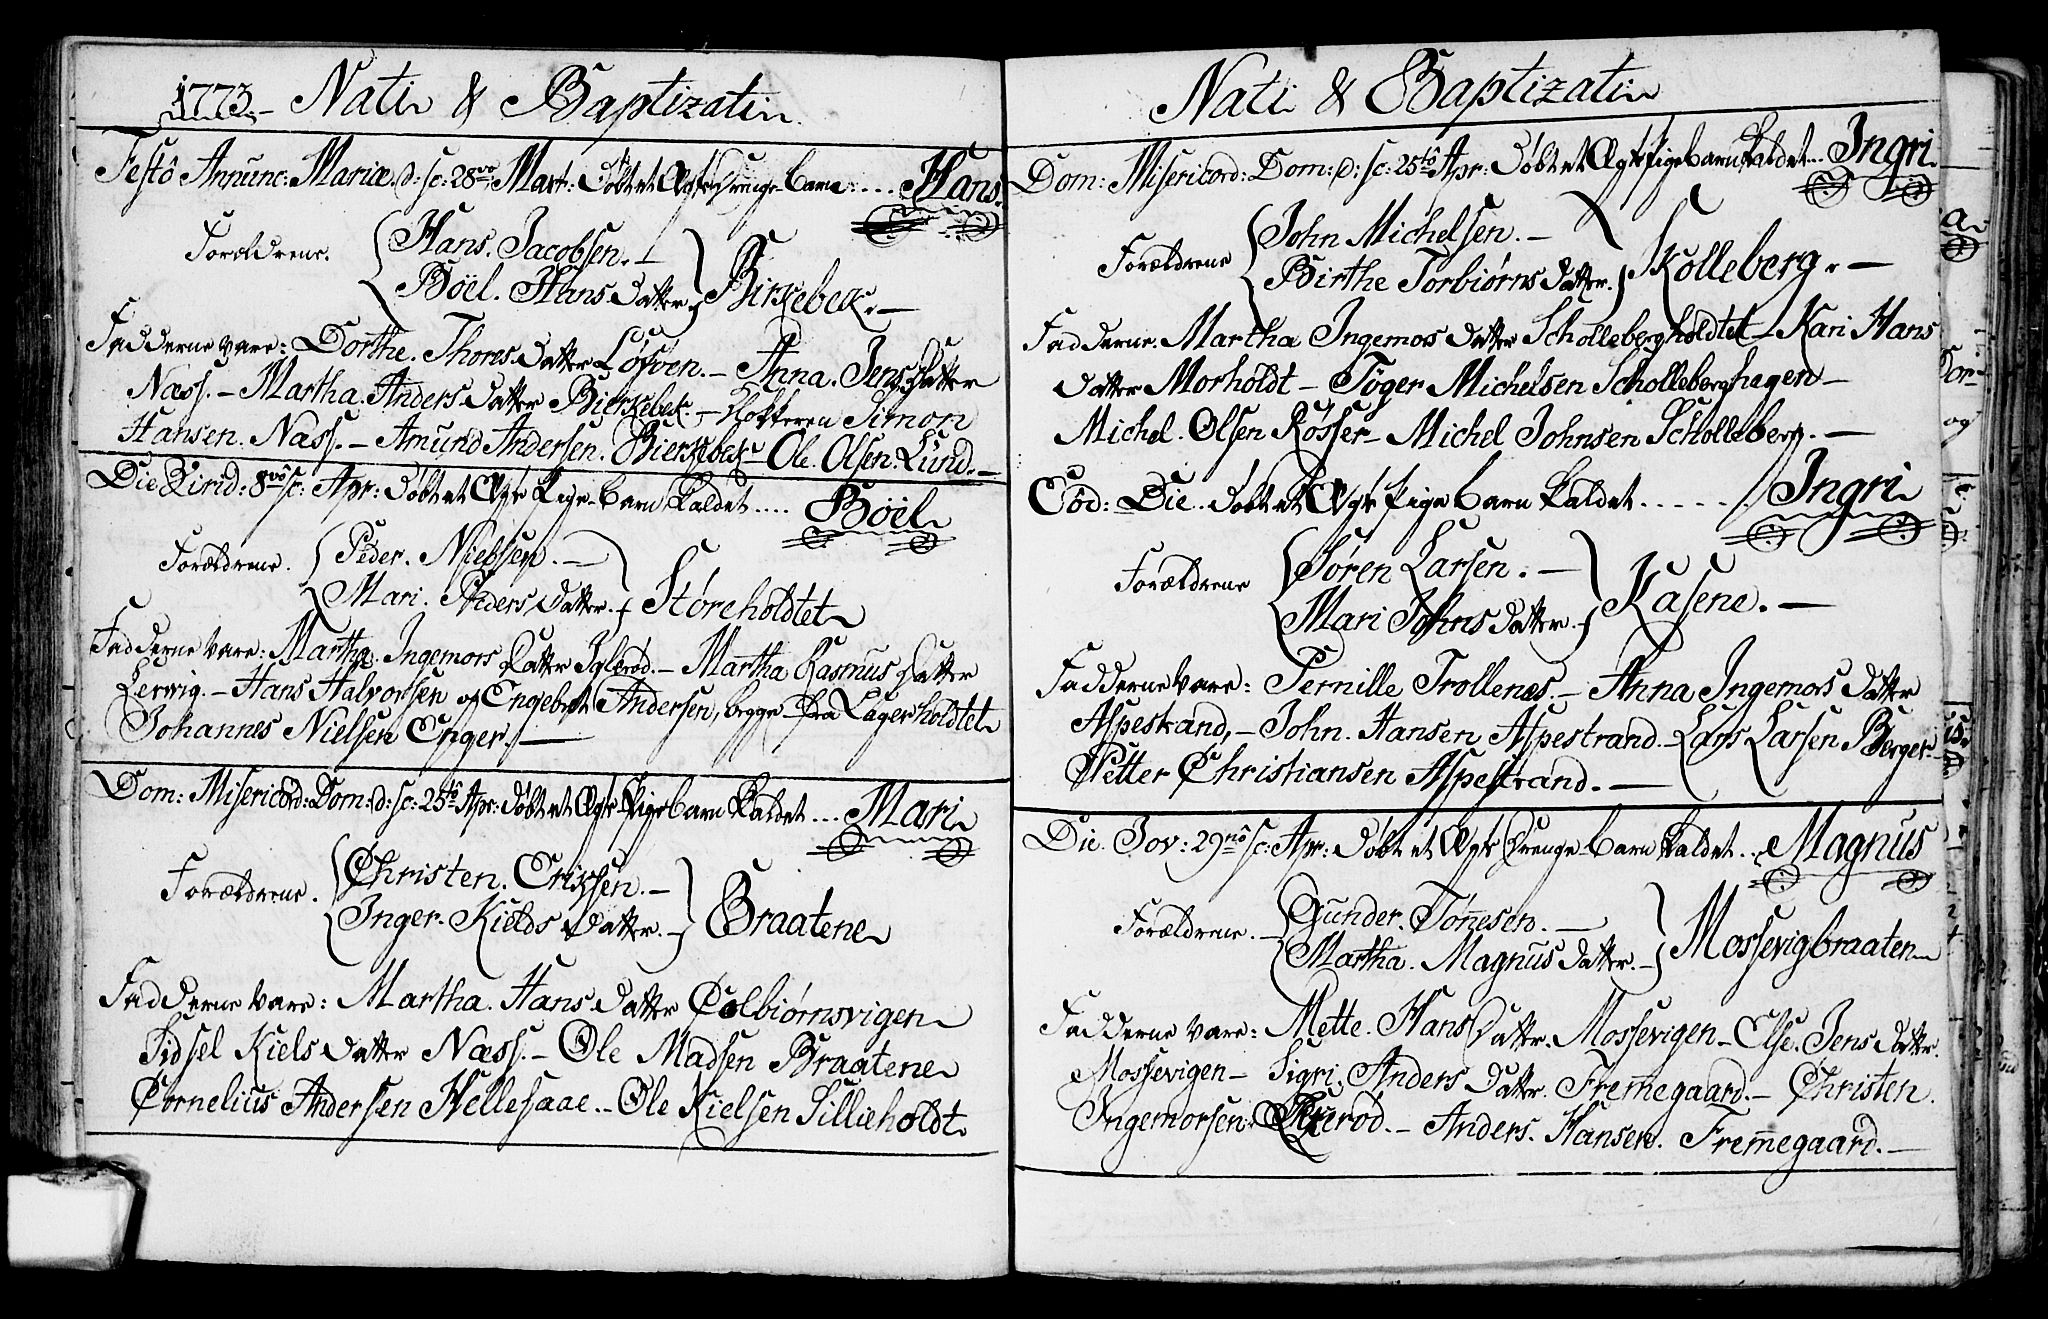 1773. Nati & Baptizati
Festô Annunc: Mariæ d: sc: 28vo Mart: døbt et Ægte Drenge-barn: ... Hans.
Forældrene. Hans. Jacobsen. —
Böel. Hans datter. Birkebek. —
Fadderne vare: Dorthe. Thores datter Löfven. — Anna. Jens datter
Næss. — Martha. Anders datter Bierkebek. — Klokkeren Simon
Hansen. Næss. — Amund Andersen. Bierkebek — Ole. Olsen. Lund. —
Die Virid: 8vô sc: Apr: døbt et Ægte Pige-barn kaldet .... Böel
Forældrene. Peder. Nielsen. —
Mari. Peders datter. Störeholdtet
Fadderne vare: Martha. Ingemors datter Iglerød. — Martha Rasmus datter
Lervig. — Hans Halvorsen og Engebret Andersen, begge fra Lagerholdtet
Johannes Nielsen Enger. —
Dom: Misericord: Dom: d: sc: 25tô Apr: døbt et Ægte Pige barn kaldet ... Mari
Forældrene. Christen. Erixsen. —
Inger. Kields datter. — Braatene
Fadderne vare: Martha. Hans datter Colbiørnsvigen
Sidsel Kiels datter Næss. — Ole Madsen Braatene
Cornelius Andersen Hellesaae. — Ole Kielsen Sillieholdt
Nati & Baptizati
Dom: Misericord: Dom: d: sc: 25tô Apr: døbt et Ægte Pige barn kaldet ... Ingri
Forældrene John Michelsen. —
Birthe Torbiørns datter. Skolleberg. —
Fadderne. Martha Ingemors datter Schollebergholdtet — Kari Hans
datter Morholdt — Töger Michelsen Scholleberghagen —
Michel. Olsen Rösser — Michel Johnsen Scholleberg. —
Eod: Die. døbt et Ægte Pige barn kaldet ...... Ingri
Forældrene Sören Larsen. —
Mari Johns datter. — Kasene. —
Fadderne vare: Pernille Trollenæs. — Anna Ingemors datter
Aspestrand, — John. Hansen Aspestrand. — Lars Larsen Berger —
Petter Christiansen Aspestrand. —
Die. Jov: 29nô sc: Apr: døbt et Ægte Drenge-barn kaldet ... Magnus
Forældrene. — Gunder. Tönesen. —
Martha. Magnus datter. — Mossevigbraaten
Fadderne vare: Mette. Hans datter. Mossevigen — Else. Jens datter.
Mossevigen — Sigri. Anders datter. Fremegaard. — Christen.
Ingemorsen. — Anders. Hansen. Fremegaard. —